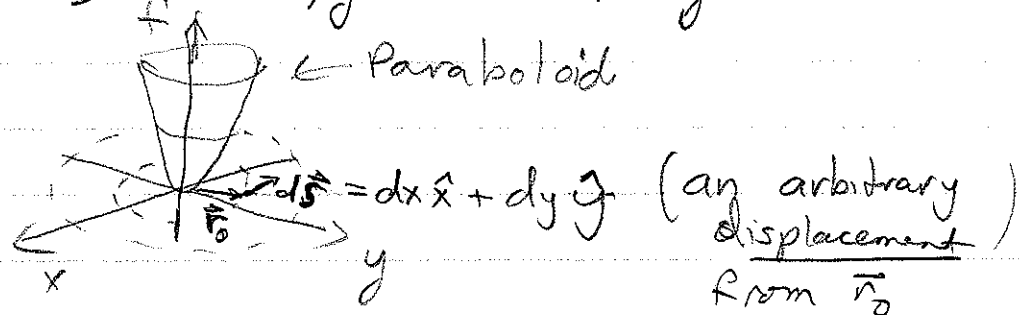 f
← Paraboloid
ds⃗ = dx x̂ + dy ŷ (an arbitrary
displacement)
r⃗₀
x
y
from r⃗₀